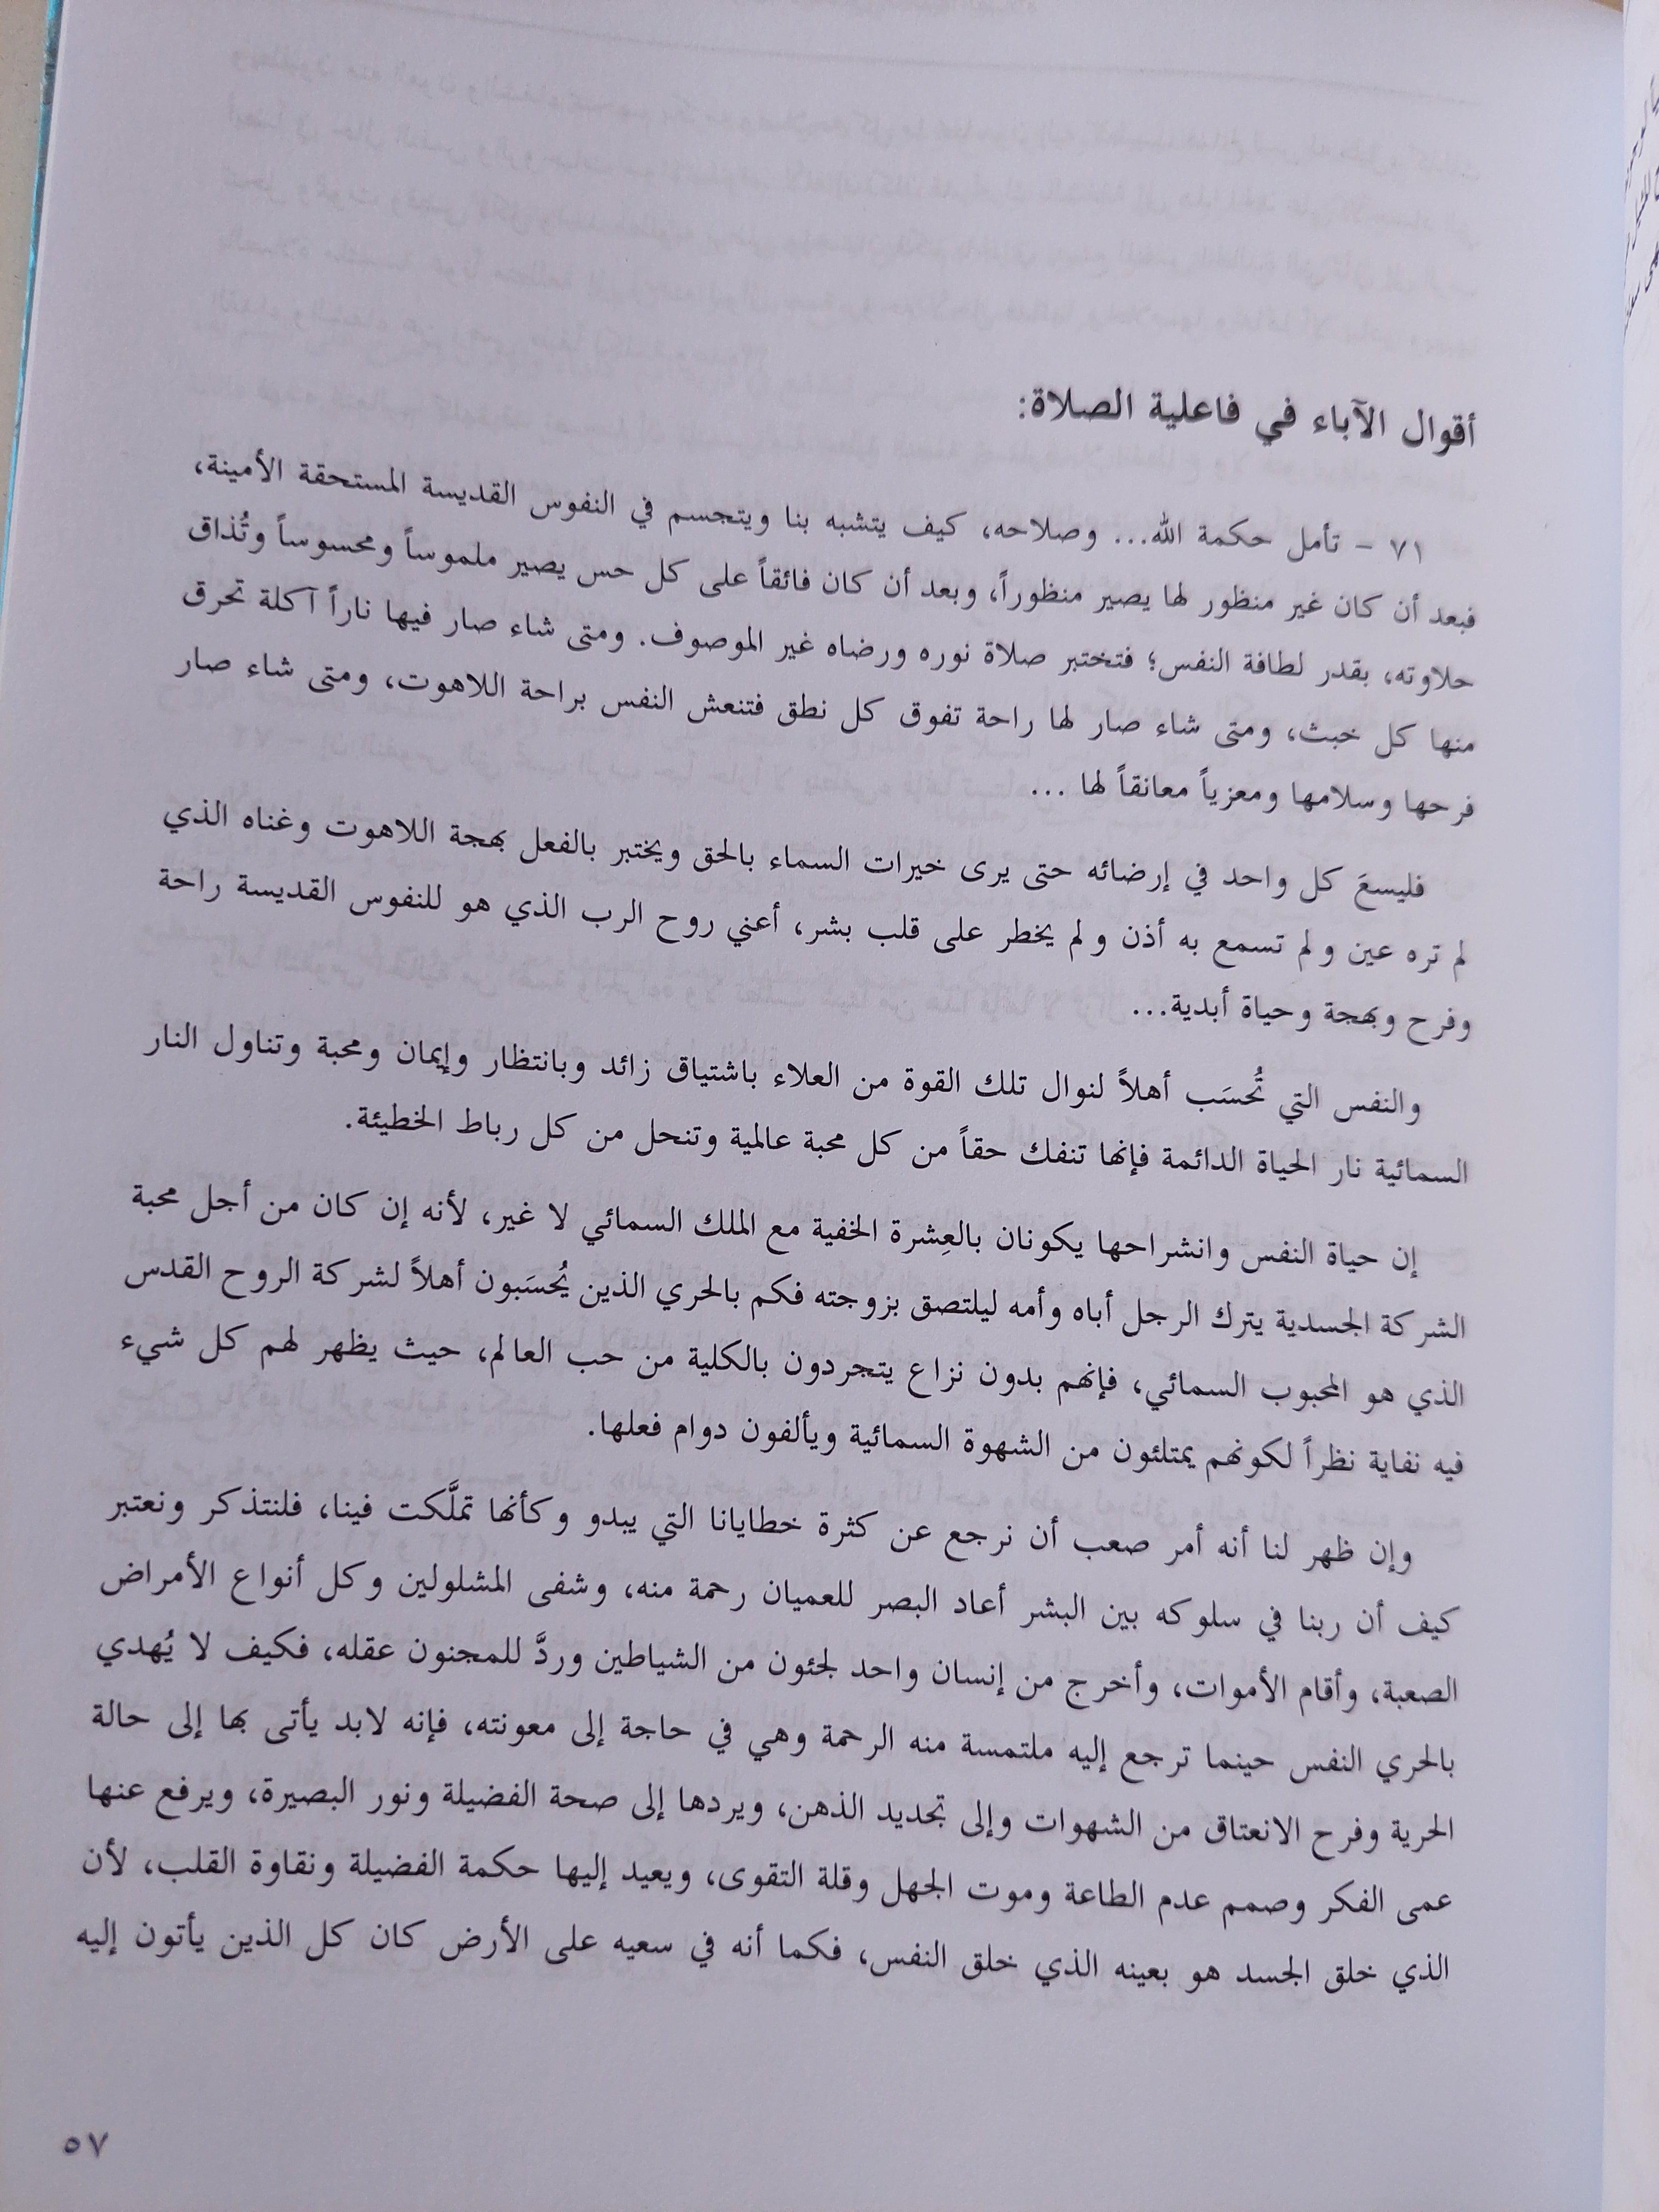 أقوال الآباء في فاعلية الصلاة:
٧١ - تأمل حكمة الله... وصلاحه، كيف يتشبه بنا ويتجسم في النفوس القديسة المستحقة الأمينة،
فبعد أن كان غير منظور لها يصير منظوراً، وبعد أن كان فائقاً على كل حس يصير ملموساً ومحسوساً وتُذاق
حلاوته، بقدر لطافة النفس؛ فتختبر صلاة نوره ورضاه غير الموصوف. ومتى شاء صار فيها ناراً آكلة تحرق
منها كل خبث، ومتى شاء صار لها راحة تفوق كل نطق فتنعش النفس براحة اللاهوت، ومتى شاء صار
فرحها وسلامها ومعزياً معانقاً لها ...
فليسعَ كل واحد في إرضائه حتى يرى خيرات السماء بالحق ويختبر بالفعل بهجة اللاهوت وغناه الذي
لم تره عين ولم تسمع به أذن ولم يخطر على قلب بشر، أعني روح الرب الذي هو للنفوس القديسة راحة
وفرح وبهجة وحياة أبدية...
والنفس التي تُحسَب أهلاً لنوال تلك القوة من العلاء باشتياق زائد وبانتظار وإيمان ومحبة وتناول النار
السمائية نار الحياة الدائمة فإنها تنفك حقاً من كل محبة عالمية وتنحل من كل رباط الخطيئة.
إن حياة النفس وانشراحها يكونان بالعِشرة الخفية مع الملك السمائي لا غير، لأنه إن كان من أجل محبة
الشركة الجسدية يترك الرجل أباه وأمه ليلتصق بزوجته فكم بالحري الذين يُحسَبون أهلاً لشركة الروح القدس
الذي هو المحبوب السمائي، فإنهم بدون نزاع يتجردون بالكلية من حب العالم، حيث يظهر لهم كل شيء
فيه نفاية نظراً لكونهم يمتلئون من الشهوة السمائية ويألفون دوام فعلها.
وإن ظهر لنا أنه أمر صعب أن نرجع عن كثرة خطايانا التي يبدو وكأنها تملَّكت فينا، فلنتذكر ونعتبر
كيف أن ربنا في سلوكه بين البشر أعاد البصر للعميان رحمة منه، وشفى المشلولين وكل أنواع الأمراض
الصعبة، وأقام الأموات، وأخرج من إنسان واحد لجئون من الشياطين وردَّ للمجنون عقله، فكيف لا يُهدي
بالحري النفس حينما ترجع إليه ملتمسة منه الرحمة وهي في حاجة إلى معونته، فإنه لابد يأتى بها إلى حالة
الحرية وفرح الانعتاق من الشهوات وإلى تجديد الذهن، ويردها إلى صحة الفضيلة ونور البصيرة، ويرفع عنها
عمى الفكر وصمم عدم الطاعة وموت الجهل وقلة التقوى، ويعيد إليها حكمة الفضيلة ونقاوة القلب، لأن
الذي خلق الجسد هو بعينه الذي خلق النفس، فكما أنه في سعيه على الأرض كان كل الذين يأتون إليه
٥٧